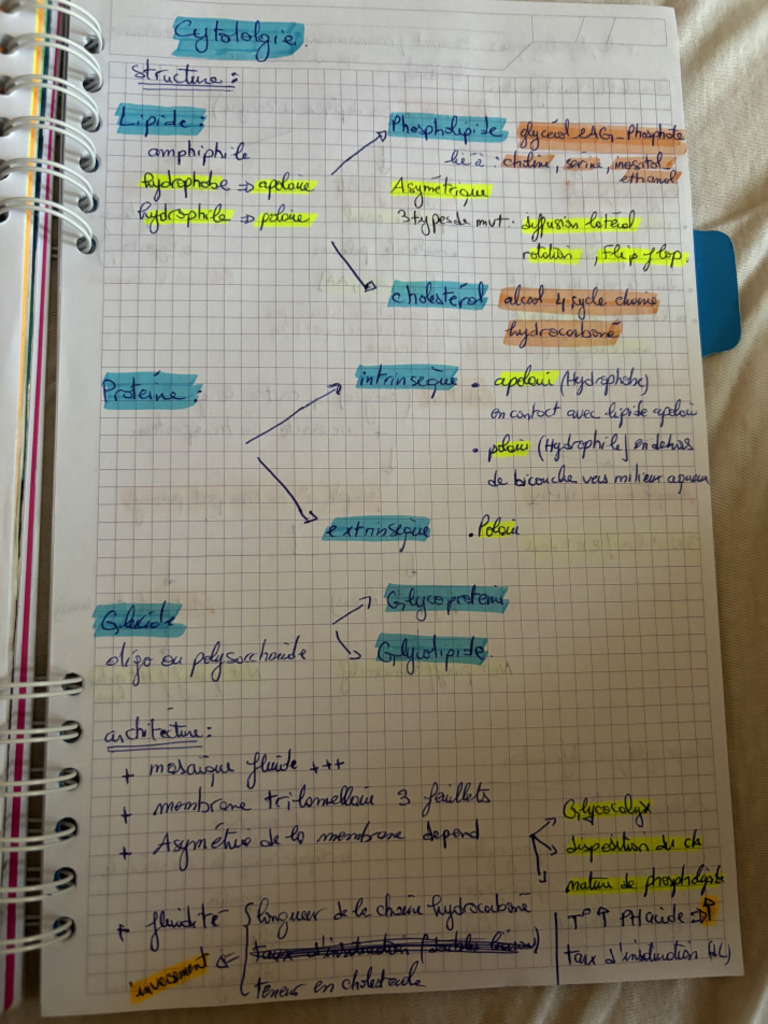 Cytologie.
structure :
Lipide :
amphiphile
hydrophobe => apolaire
hydrophile => polaire
Phospholipide glycérol 2AG - Phosphate
lié à : choline, serine, inositol -
ethanol
Asymétrique
3 types de mvt . diffusion latéral
rotation , Flip flop.
cholestérol alcool 4 sycle chaine
hydrocarboné
Proteine :
intrinsèque • apolair (Hydrophobe)
en contact avec lipide apolair
• polair (Hydrophile) en dehors
de bicouche vers milieu aqueux
extrinsèque . Polair
Glucide
oligo ou polysaccharide
Glycoproteine
Glycolipide.
architecture :
+ mosaique fluide +++
+ membrane trilamellair 3 feuillets
+ Asymétrie de la membrane depend
Glycocalyx
disposition du ch
nature de phospholipide
+ fluidité longueur de la chaine hydrocarboné
taux d'insaturation (doubles liaison)
inversement teneur en cholesterole
T° ↑ PH acide => ↑
taux d'insaturation